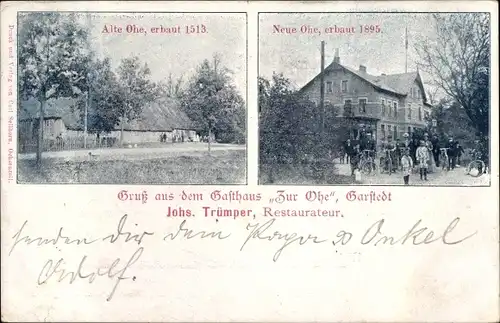 Alte Ohe, erbaut 1513.
Neue Ohe, erbaut 1895.
Druck und Verlag von Carl
Gruß aus dem Gasthaus „Zur Ohe", Garstedt
Johs. Trümper, Restaurateur.
senden dir dem Onkel
Adolf.